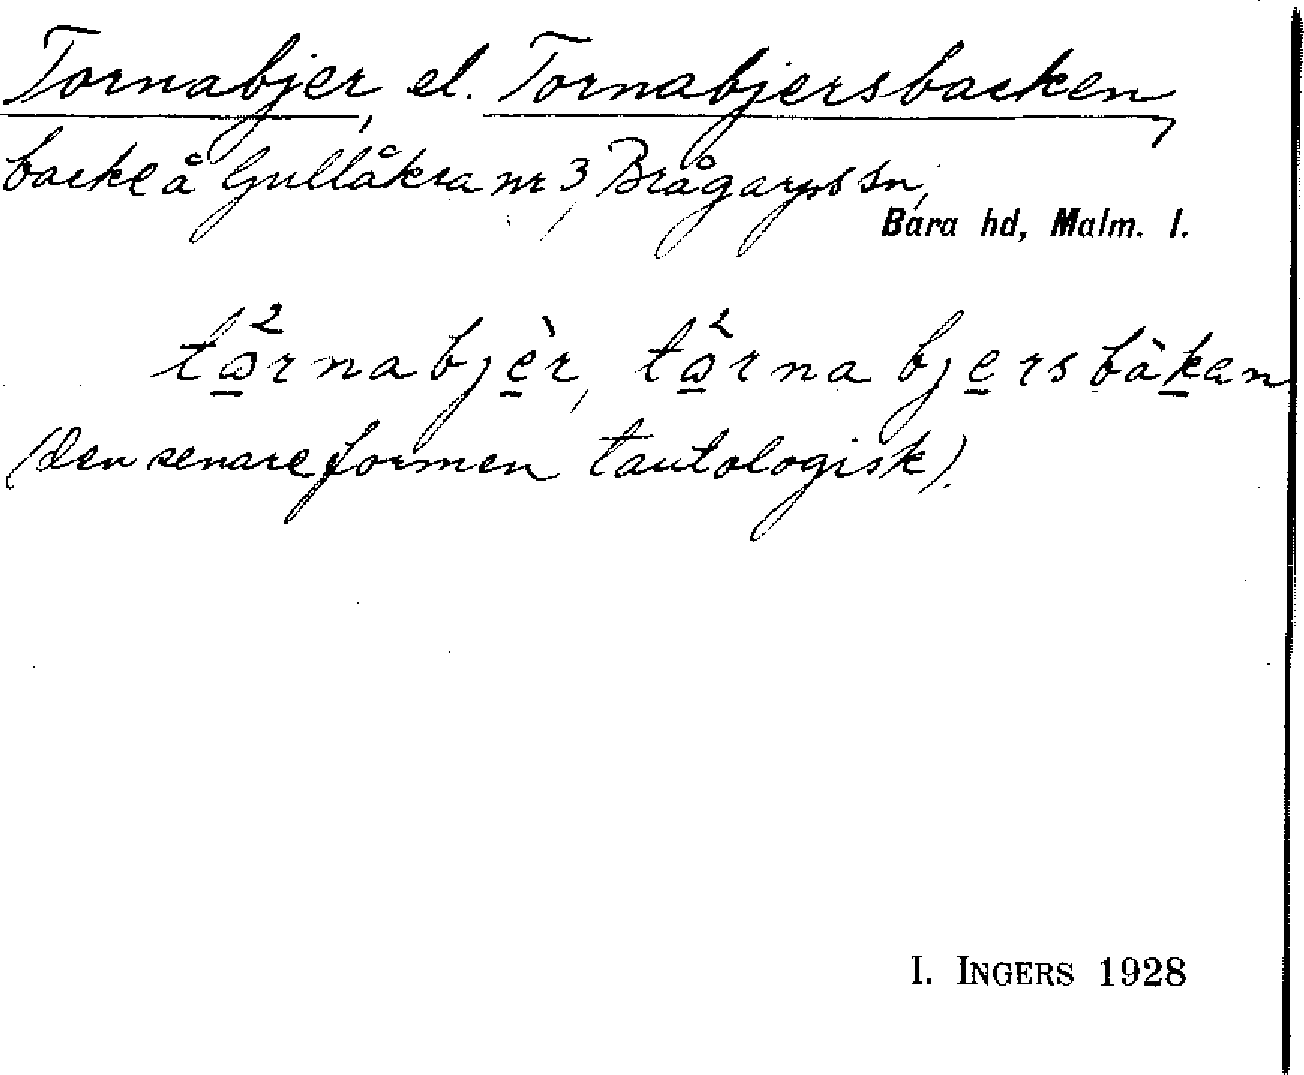 Tornabjer, el. Tornabjersbacken,
backe å Gullåkra nr 3, Brågarps sn,
Bara hd, Malm. l.
tå²rnabjèr, tå²rnabjersbàkan
(den senare formen tautologisk).
I. INGERS 1928